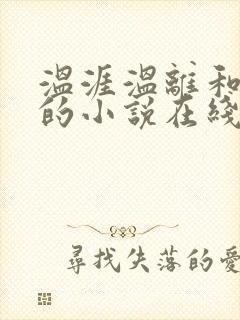 温涯温離和
的小说在綫
尋找失落的愛